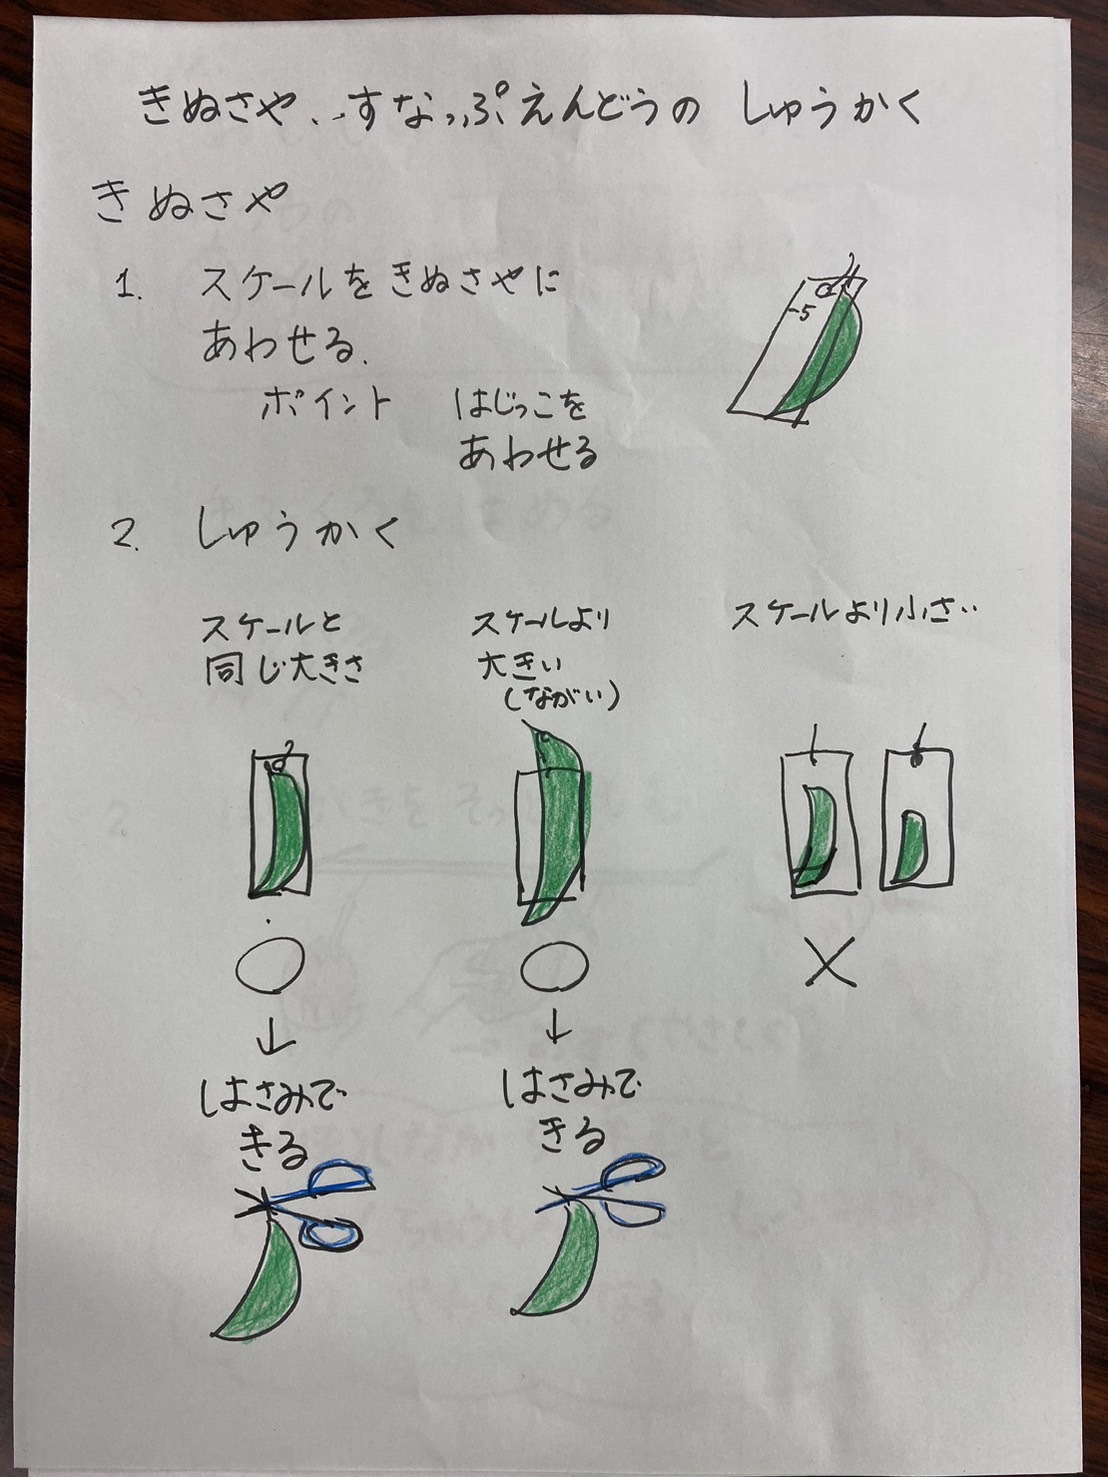 きぬさや、すなっぷえんどうの しゅうかく
きぬさや
1. スケールをきぬさやに
あわせる.
ポイント はじっこを
あわせる
-5
2. しゅうかく
スケールと
同じ大きさ
スケールより
大きい
(ながい)
スケールより小さい
○
○
×
↓
↓
はさみで
きる
はさみで
きる